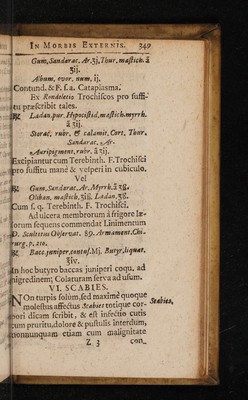 IN MORBIS EXTERNIS. 349
Gum, Sandarac. Ar. ʒj, Thur, mastich. ā
ʒij.
Album. ovor. num. ij.
Contund. & F. s. a. Cataplasma.
Ex Rondeletio Trochiscos pro suffi-
tu præscribit tales.
℞ Ladan. pur. Hypocistid, mastich. myrrh.
ā ʒij.
Storac, rubr. & calamit. Cort, Thur,
Sandarac. Ar.
Auripigment, rubr. ā ʒij.
Excipiantur cum Terebinth. F. Trochisci
pro suffitu manè & vesperi in cubiculo.
Vel
℞ Gum, Sandarac. Ar. Myrrh. ā
Oliban. mastich, Ladan.
Cum s. q. Terebinth. F. Trochisci.
Ad ulcera membrorum à frigore læ-
sorum sequens commendat Linimentum
D. Scultetus Observat. 89. Armament. Chi-
rurg. p. 210.
℞ Bacc. juniper, contus. Mj. Butyr, liquat.
ʒiv.
In hoc butyro baccas juniperi coqu. ad
nigredinem; Colaturam serva ad usum.
VI. SCABIES.
NOn turpis solùm, sed maximè quoque
molestus affectus Scabies totique cor-
pori dicam scribit, & est infectio cutis
cum pruritu, dolore & pustulis interdum,
nonnunquam etiam cum malignitate
Z 3 con-
Scabies,